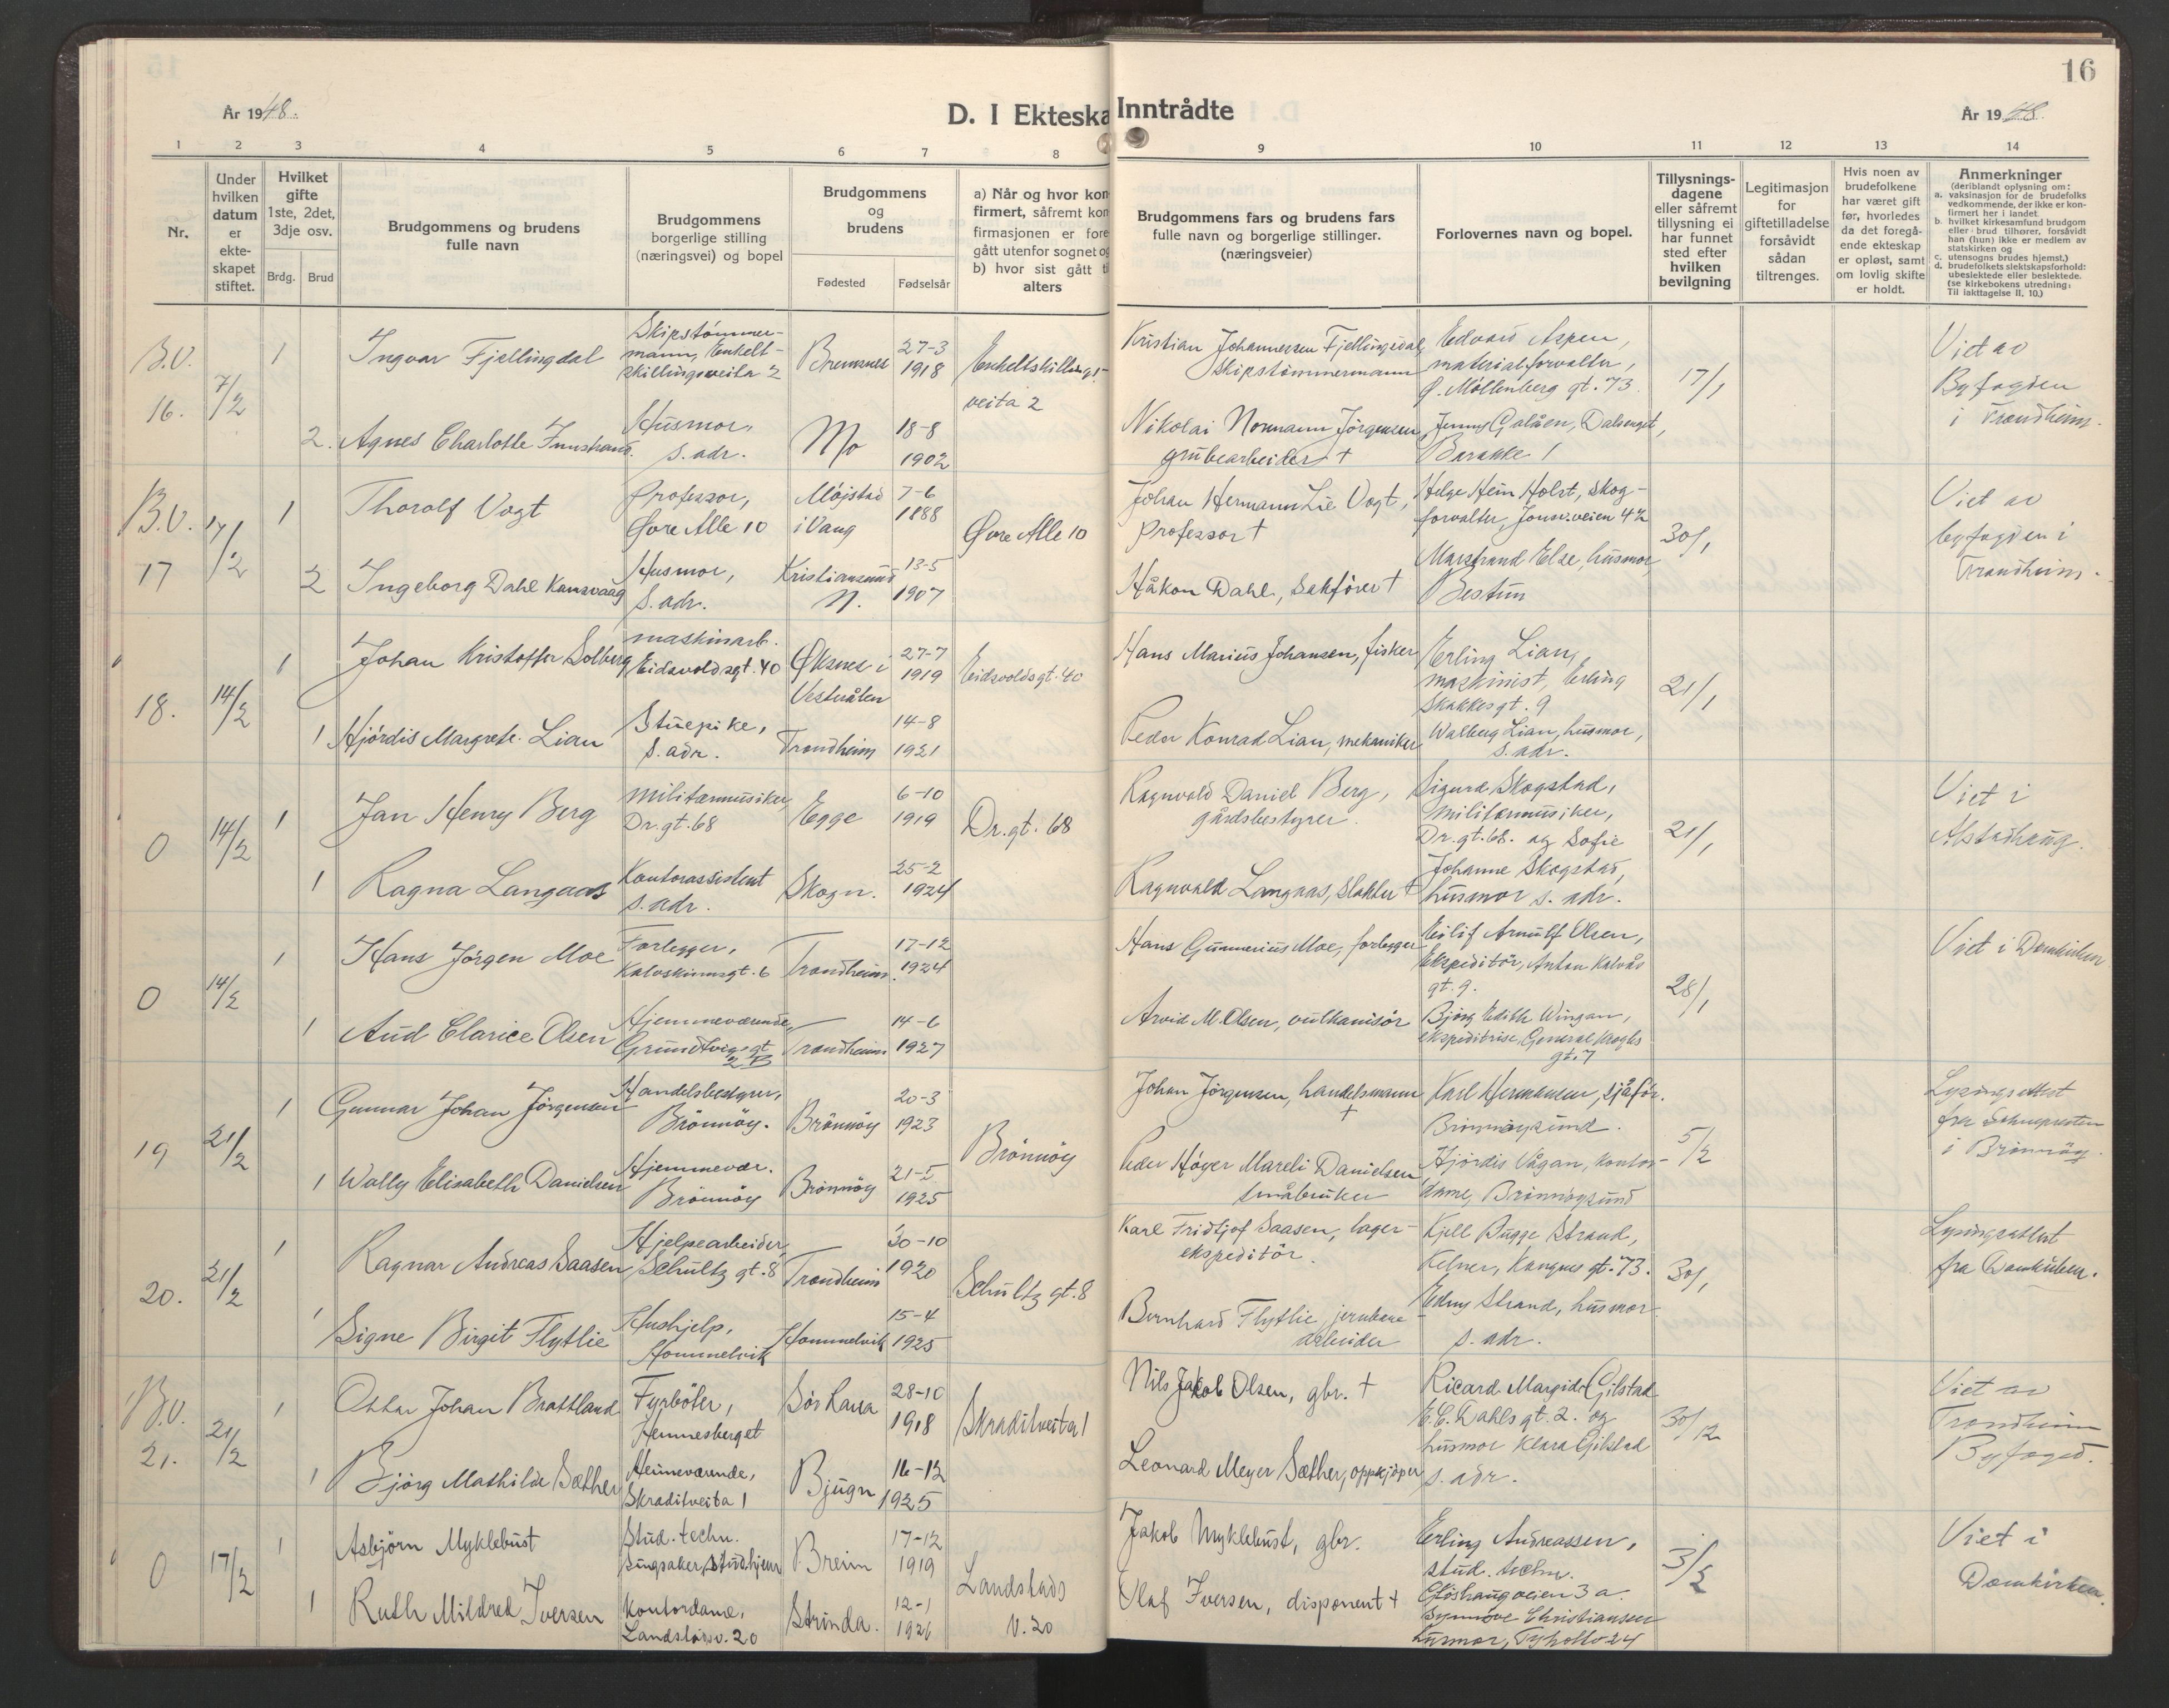 16
År 1948.
D. I Ekteska
Inntrådte
År 1948.
1 2 3 4 5 6 7 8 9 10 11 12 13 14
Nr.
Under
hvilken
datum
er
ekte-
skapet
stiftet.
Hvilket
gifte
1ste, 2det,
3dje osv.
Brdg. Brud
Brudgommens og brudens
fulle navn
Brudgommens
borgerlige stilling
(næringsvei) og bopel
Brudgommens
og
brudens
Fødested Fødselsår
a) Når og hvor kon
firmert, såfremt kon
firmasjonen er fore
gått utenfor sognet og
b) hvor sist gått ti
alters
Brudgommens fars og brudens fars
fulle navn og borgerlige stillinger.
(næringsveier)
Forlovernes navn og bopel.
Tillysnings-
dagene
eller såfremt
tillysning ei
har funnet
sted efter
hvilken
bevilgning
Legitimasjon
for
giftetilladelse
forsåvidt
sådan
tiltrenges.
Hvis noen av
brudefolkene
har været gift
før, hvorledes
da det foregå-
ende ekteskap
er opløst, samt
om lovlig skifte
er holdt.
Anmerkninger
(deriblandt oplysning om:
a. vaksinasjon for de brudefolks
vedkommende, der ikke er kon-
firmert her i landet.
b. hvilket kirkesamfund brudgom
eller brud tilhører, forsåvidt
han (hun) ikke er medlem av
statskirken og
c. utensogns brudes hjemst.)
d. brudefolkets slektskapsforhold:
ubeslektede eller beslektede.
(se kirkebokens utredning:
Til iakttagelse II. 10.)
B.V.
16.
7/2
1
Ingvar Fjellingdal
Skipstömmer-
mann, Enkelt-
skillingsveita 2
Bremsnes
27-3
1918
Enkeltskillings-
veita 2
Kristian Johannessen Fjellingsdal,
Skipstömmermann
Edvard Aspen,
materialforvalter,
Ø. Möllenberg gt. 73.
17/1
Viet av
Byfogden
i Trondheim.
2. Agnes Charlotte
Husmor,
s. adr.
Mo
18-8
1902
Nikolai Normann Jörgensen,
grubearbeider +
Jenny Galåen, Dalsenget,
Barakke 1
B.V.
17
14/2
1
Thorolf Vogt
Professor,
Øvre Alle 10
i Vang
7-6
1888
Øvre Alle 10
Johan Hermann Lie Vogt,
Professor +
Helge Hein Holst, skog-
forvalter, Jonsv.veien
30/1
Viet av
byfogden i
Trondheim.
2 Ingeborg Dahl Kansvaag
Husmor,
s. adr.
Kristiansund
N.
13-5
1907
Håkon Dahl, Sakförer +
Marstrand Else, husmor,
Bestun
18.
14/2
1
Johan Kristoffer Solberg
maskinarb.
Eidsvoldsgt. 40
Øksnes i
Vesterålen
27-7
1919
Eidsvoldsgt. 40
Hans Marius Johansen, fisker
Erling Lian,
maskinist, Erling
Skakkesgt. 9
21/1
1 Hjördis Margrete Lian
Stuepike,
s. adr.
Trondheim
14-8
1921
Peder Konrad Lian, mekaniker
Walborg Lian, husmor,
s. adr.
0
14/2
1
Jan Henry Berg
militærmusiker
Dr. gt. 68
Egge
6-10
1919
Dr. gt. 68
Ragnvald Daniel Berg,
gårdsbestyrer.
Sigurd Skogstad,
militærmusiker,
Dr. gt. 68. og Sofie
Johanne Skogstad,
husmor s. adr.
21/1
Viet i
Alstadhaug.
1 Ragna Langaas
Kontorassistent
s. adr.
Skogn.
25-2
1924
Ragnvald Langaas, slakter +
0
14/2
1
Hans Jörgen Moe
Forlegger,
Kalvskinnsgt. 6
Trondheim.
17-12
1924
Hans Gunnerius Moe, forlegger
Eilif Arnulf Olsen,
Ekspeditör, Anton Kalvås
gt. 9.
28/1
Viet i Domkirken
1 Aud Clarice Olsen
Hjemmeværende,
Grundtvigsgt
2 B
Trondheim
14-6
1927
Arvid M. Olsen, vulkanisör
Bjørg Edith Wingan,
ekspeditrise, General Kroghs
gt. 7
19
21/2
1
Gunnar Johan Jörgensen
Handelsbestyrer,
Brönnöy.
Brönnöy
20-3
1923
Brönnöy
Johan Jörgensen, handelsmann
+
Karl Hermansen, sjåför.
Brönnöysund.
5/2
Lysingsattest
fra Soknepresten
i Brönnöy.
1 Wally Elisabeth Danielsen
Hjemmevær.
Brönnöy
Brönnöy
1925
Peder Höyer Mareli Danielsen,
småbruker
Hjördis Vågan, kontor-
dame, Brönnöysund
20.
21/2
1
Ragnar Andreas Saasen
Hjelpearbeider,
Schultz gt. 8
Trondheim
30-10
1920
Schultz gt. 8
Karl Fridtjof Saasen, lager-
ekspeditör.
Kjell Bugge Strand,
Kelner, Kongens gt. 73.
30/1
Lysingsattest
fra Domkirken.
1 Signe Birgit Flytlie
Hushjelp,
Hommelvik
Hommelvik
15-4
1925
Bernhard Flytlie, jernbane-
arbeider
Edny Strand, husmor
s. adr.
B.V.
21.
21/2
1
Ottar Johan Brattland
Fyrböter,
Hemnesberget
Sör Rana
28-10
1918
Skraditveita 1
Nils Jakob Olsen, gbr. +
Ricard Margido Gilstad
E.C. Dahls gt. 2. og
husmor Klara Gilstad
s. adr.
30/12
Viet av
Trondheim
Byfoged.
1 Björg Mathilde Sæther
Heimeværende,
Skraditveita 1
Bjugn
16-12
1925
Leonard Meyer Sæther, oppkjöper
0
17/2
1
Asbjörn Myklebust
Stud. techn.
Singsaker, studhjem
Breim
17-12
1919
Landstads
v. 20
Jakob Myklebust, gbr.
Erling Andreassen,
stud. techn.
Glöshaugveien 3 a.
3/2
Viet i
Domkirken.
1 Ruth Mildred Iversen
Kontordame,
Landstadsv. 20
Strinda.
12-1
1926
Olaf Iversen, disponent +
Synnöve Christiansen
husmor, Tyholtv 24